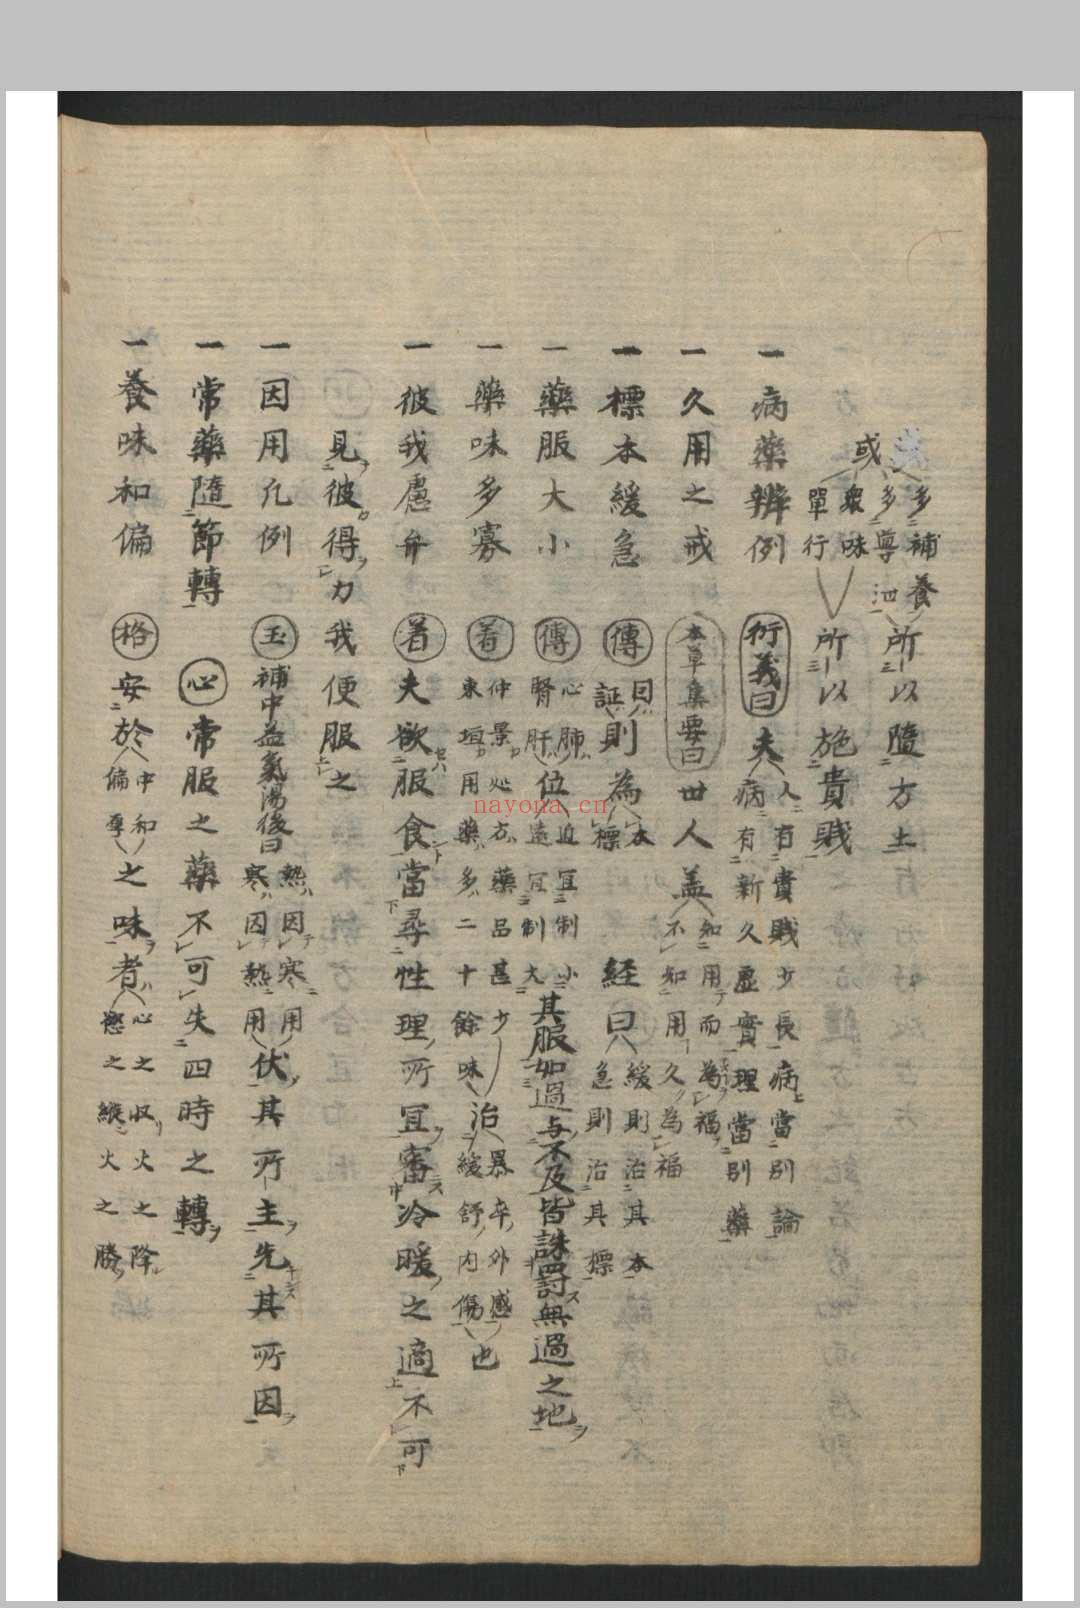 多補養
多專泄
所以隨方土
或
衆味
單行
所以施貴賤
一 病藥辨例 衍義曰 夫
人有貴賤少長病當別論
病有新久虛實理當別藥
一 久用之戒 本草集要曰 世人蓋
知用而為福
不知用久為福
一 標本緩急 傳
因則為本
証則為標
經曰
緩則治其本
急則治其標
一 藥服大小 傳
心肺位近宜制小
腎肝位遠宜制大
其服如過与不及皆誅罰無過之地
一 藥味多寡 着
仲景処方藥品甚少
東垣用藥多二十餘味
治
暴卒外感
緩舒内傷
也
一 彼我慮弁 着 夫欲服食當尋性理所宜審冷暖之適不可
見彼得力我便服之
一 因用凡例 玉 補中益氣湯後曰
熱因寒用
寒因熱用
伏其所主先其所因
一 常藥隨節轉 心 常服之藥不可失四時之轉
一 養味和偏 格 安於
中和
偏厚
之味者
心之収火之降
慾之縦火之勝
nayona.cn